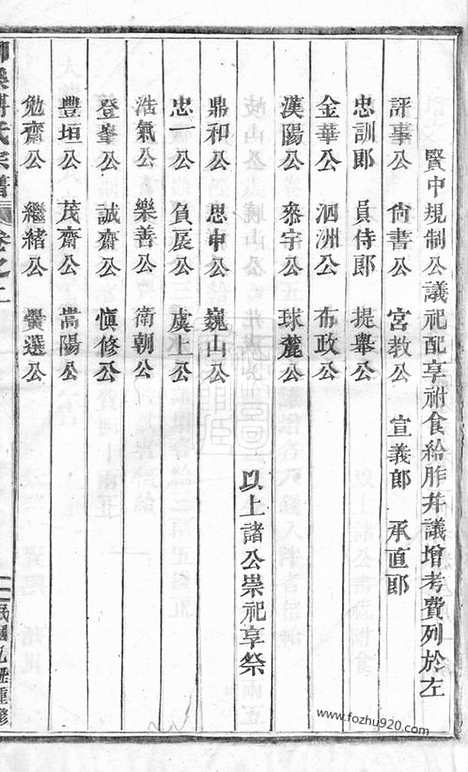 賢中規制公議祀配享祔食給胙幷議增考費列於左
評事公 尙書公 宮教公 宣義郎 承直郎
忠訓郎 員侍郎 提舉公
金華公 泗洲公 布政公
漢陽公 泰宇公 球麓公
以上諸公崇祀享祭
鼎和公 思中公 巍山公
忠一公 負扆公 虞上公
浩氣公 樂善公 衛朝公
登峯公 誠齋公 愼修公
豐垣公 茂齋公 嵩陽公
勉齋公 繼緒公 黌選公
傅氏宗譜 卷之二 民國九年重修
www.fozhu920.com